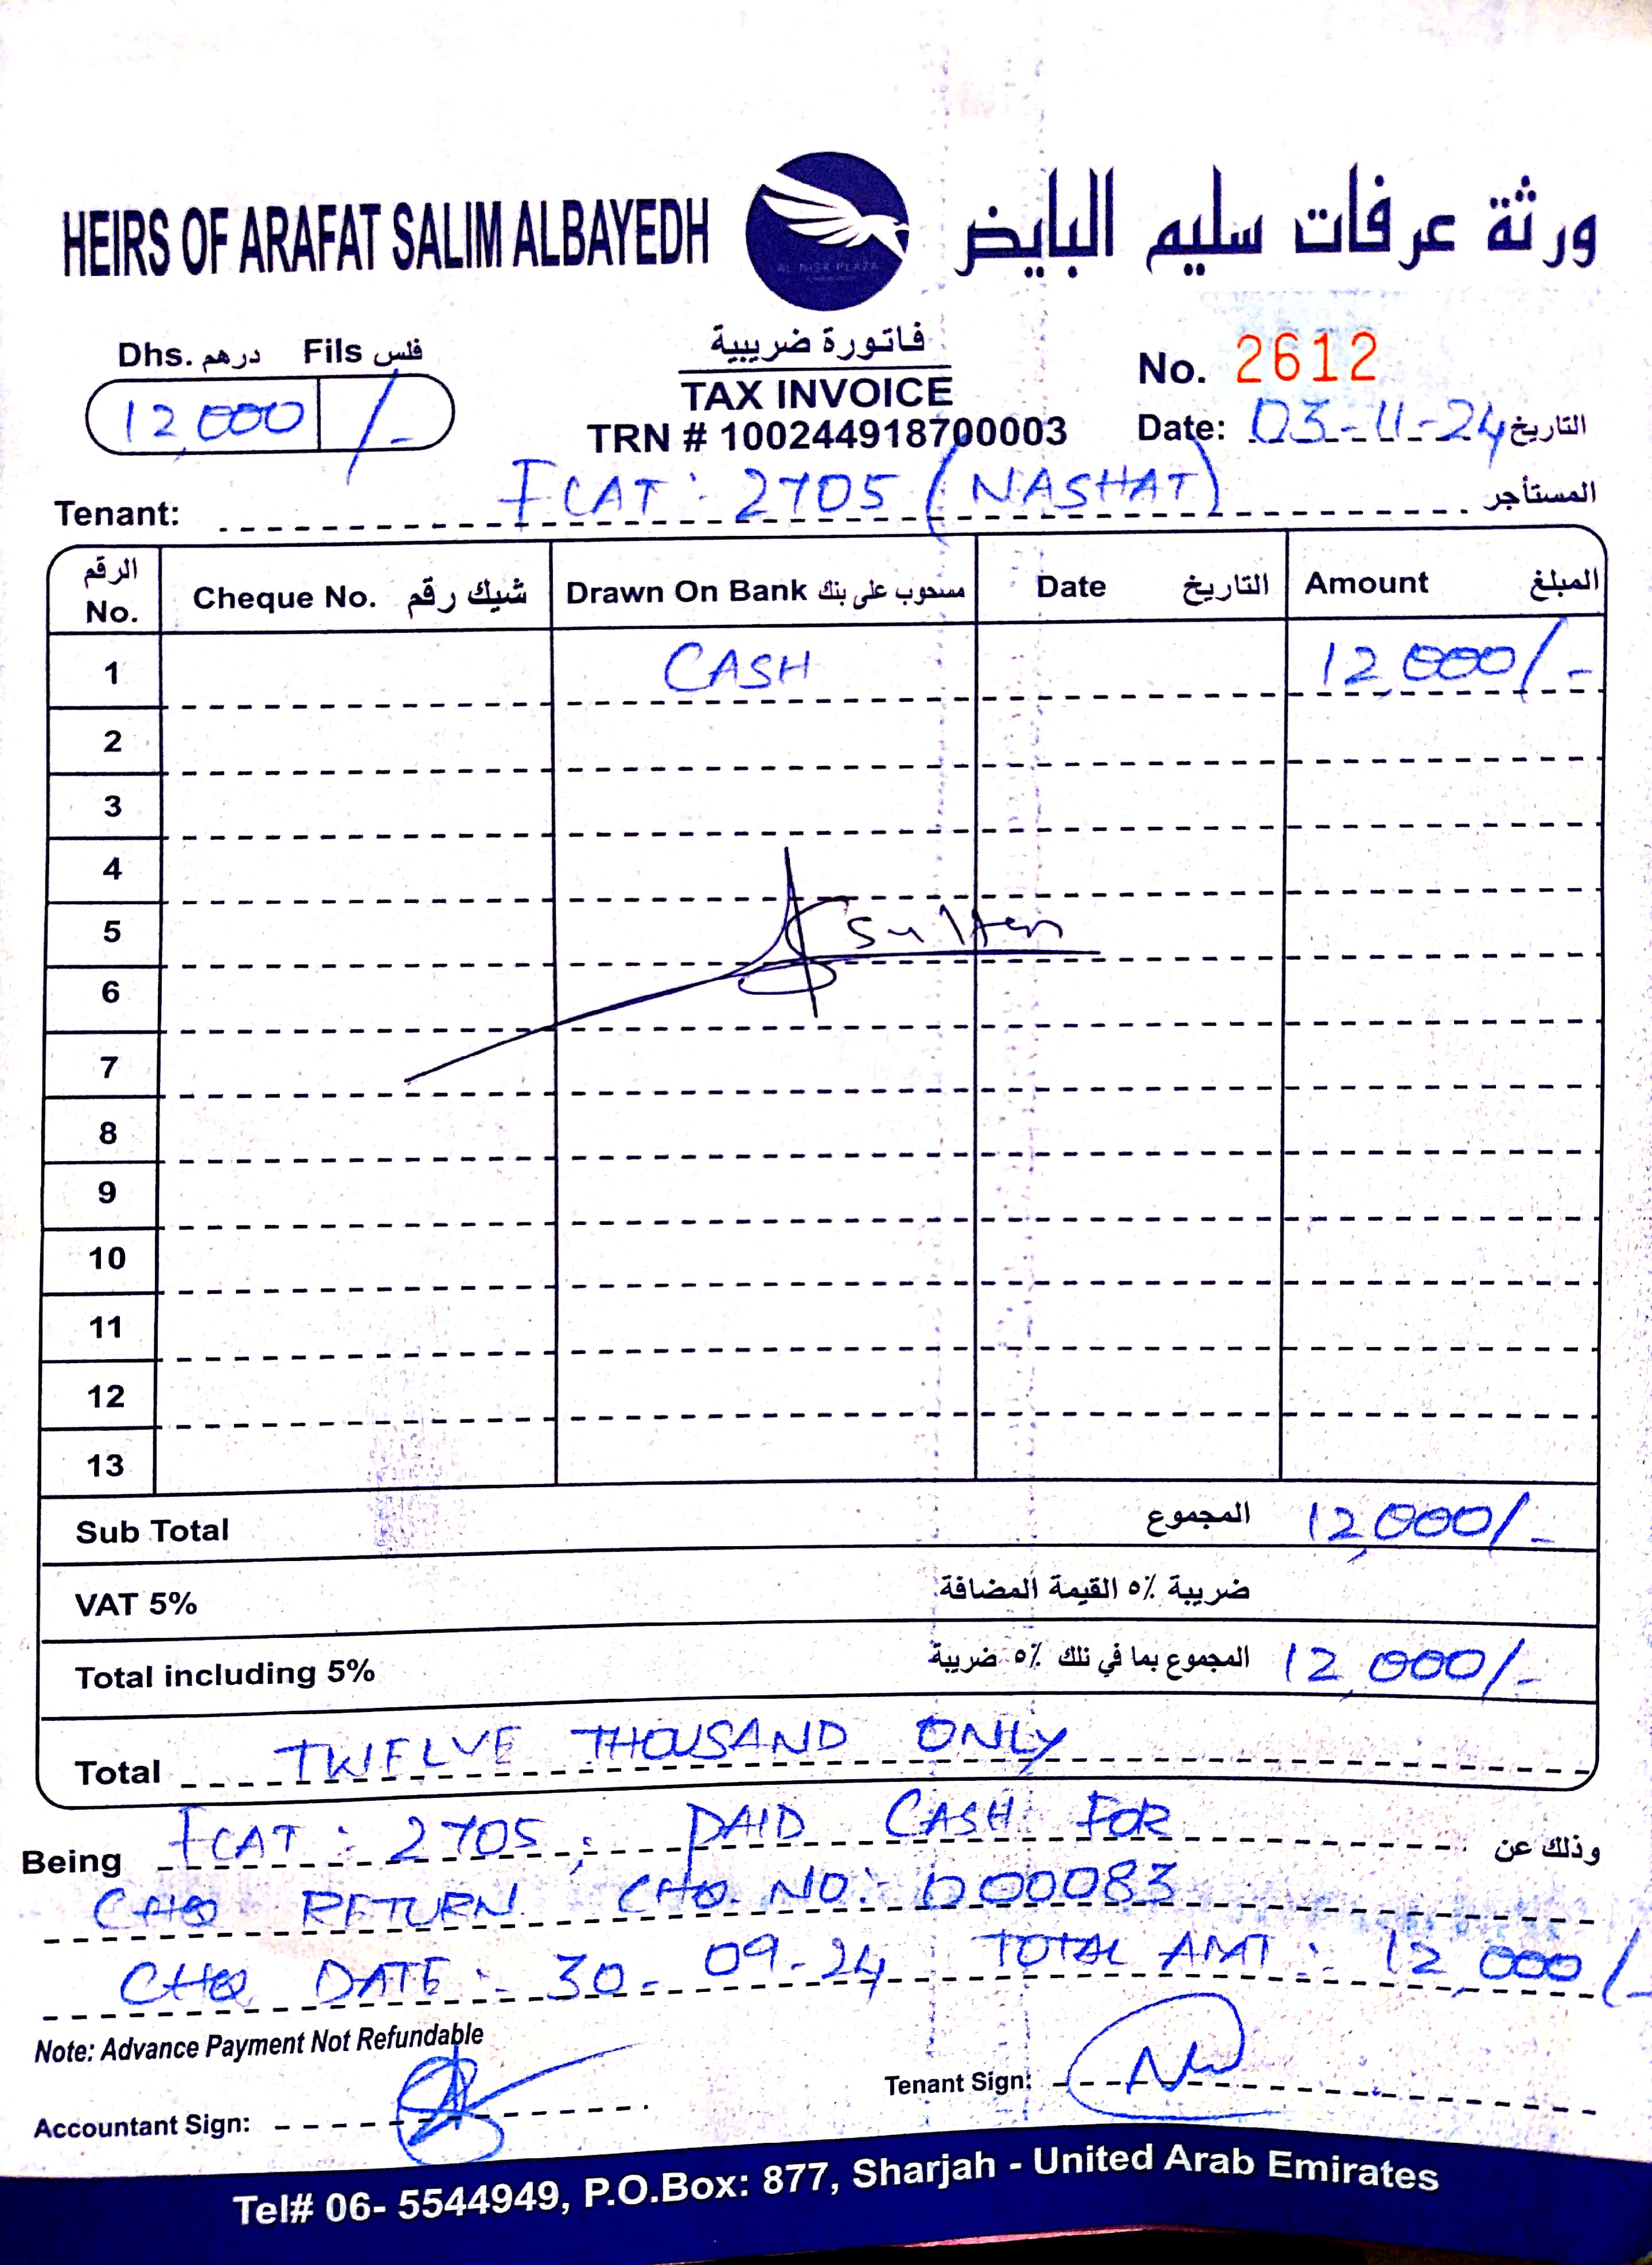 HEIRS OF ARAFAT SALIM ALBAYEDH
AL NASR PLAZA
ورثة عرفات سليم البايض
Dhs. درهم Fils فلس
12,000 /-
فاتورة ضريبية
TAX INVOICE
TRN # 100244918700003
No. 2612
Date: 03-11-24 التاريخ
Tenant: FLAT: 2705 (NASHAT) المستأجر
الرقم No. Cheque No. شيك رقم Drawn On Bank مسحوب على بنك Date التاريخ Amount المبلغ
1 CASH 12,000/-
2
3
4
5 Sultan
6
7
8
9
10
11
12
13
Sub Total المجموع 12,000/-
VAT 5% ضريبة ٥٪ القيمة المضافة
Total including 5% المجموع بما في تلك ٥٪ ضريبة 12,000/-
Total TWELVE THOUSAND ONLY
Being FLAT: 2705, PAID CASH FOR وذلك عن
CHQ RETURN CHQ. NO: 000083
CHQ DATE: 30-09-24 TOTAL AMT: 12,000/-
Note: Advance Payment Not Refundable
Accountant Sign:
Tenant Sign:
Tel# 06- 5544949, P.O.Box: 877, Sharjah - United Arab Emirates